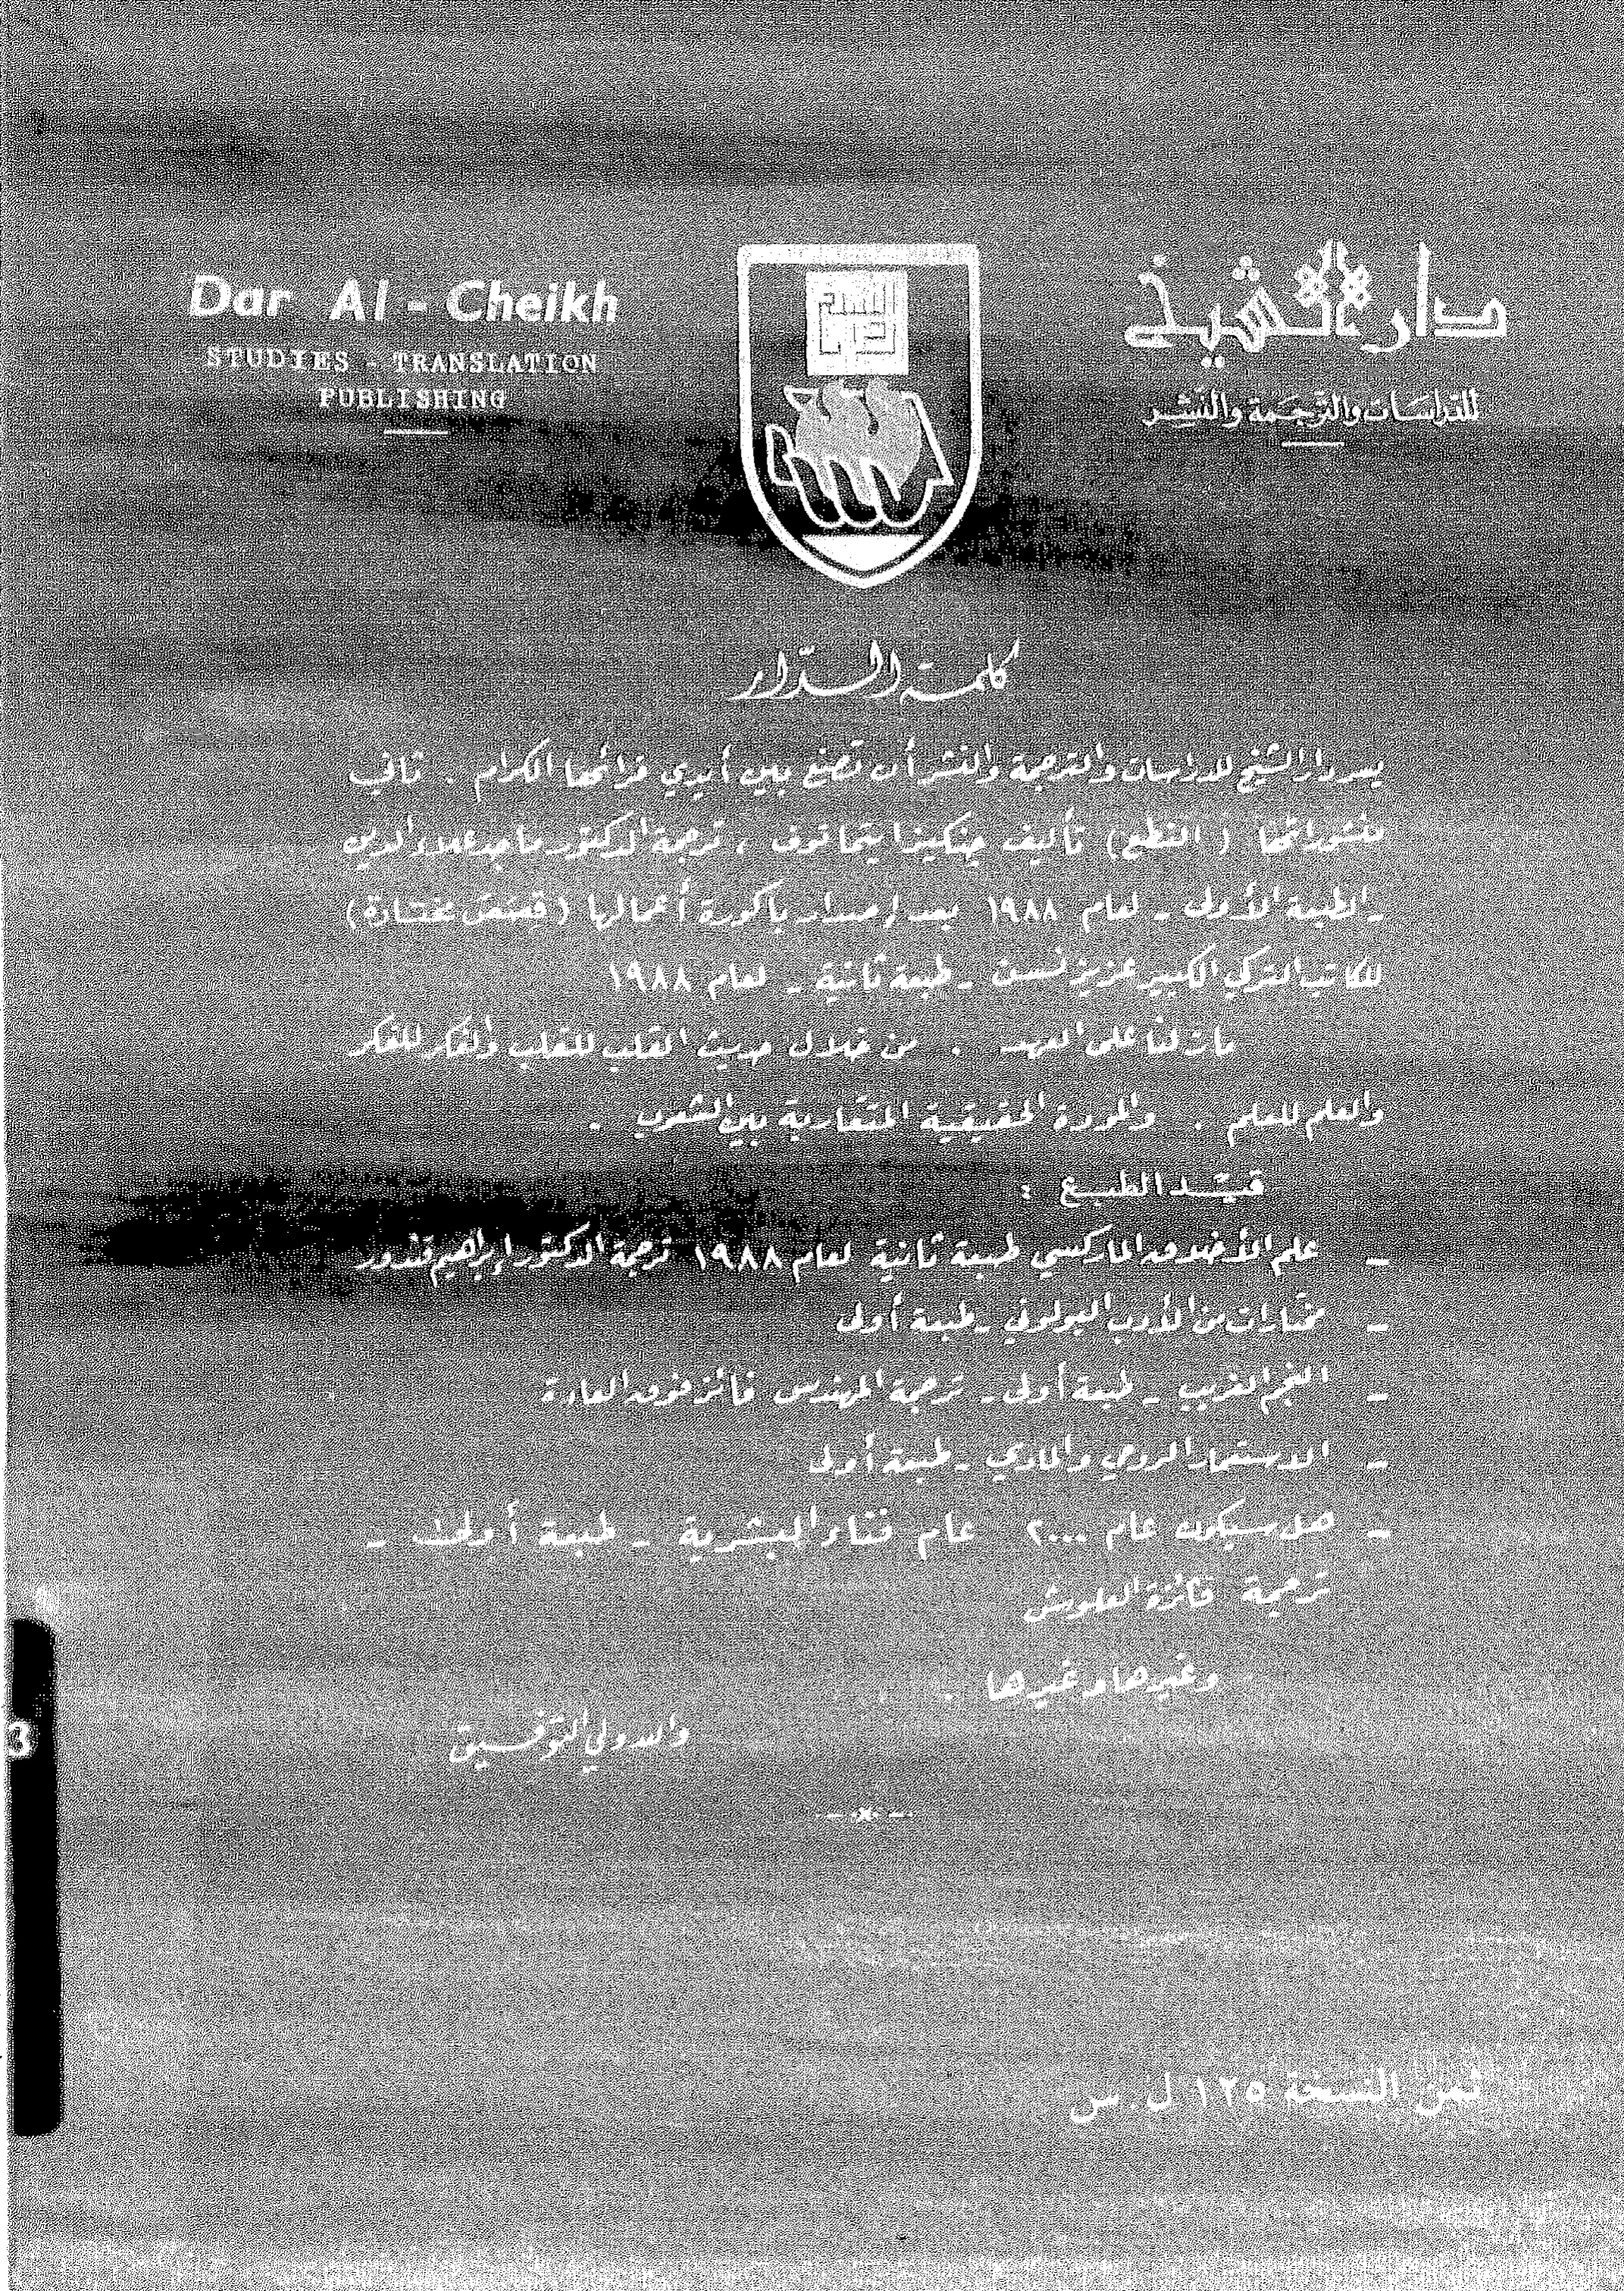 دار الشيخ
للدراسات والترجمة والنشر
Dar Al - Cheikh
STUDIES - TRANSLATION
PUBLISHING
كلمة الدار
يسر دار الشيخ للدراسات والترجمة والنشر أن تضع بين أيدي قرائها الكرام . ثاني
منشوراتها ( النطع ) تأليف جنكيز ايتماتوف ، ترجمة الدكتور ماجد علاء الدين
ـ الطبعة الأولى ـ لعام ١٩٨٨ بعد إصدار باكورة أعمالها ( قصص مختارة )
للكاتب التركي الكبير عزيز نسين ـ طبعة ثانية ـ لعام ١٩٨٨
مازلنا على العهد . من خلال حديث القلب للقلب والفكر للفكر
والعلم للعلم . والمودة الحقيقية المتقاربة بين الشعوب .
قيد الطبع :
ـ علم الأخلاق الماركسي طبعة ثانية لعام ١٩٨٨ ترجمة الدكتور إبراهيم قندور
ـ مختارات من الأدب البولوني ـ طبعة أولى
ـ النجم الغريب ـ طبعة أولى ـ ترجمة المهندس فائز فوق العادة
ـ الاستعمار الروحي والمادي ـ طبعة أولى
ـ هل سيكون عام ٢٠٠٠ عام فناء البشرية ـ طبعة أولى ـ
ترجمة فائزة العلويش
وغيرها وغيرها .
والله ولي التوفيق
ثمن النسخة ١٢٥ ل.س
3